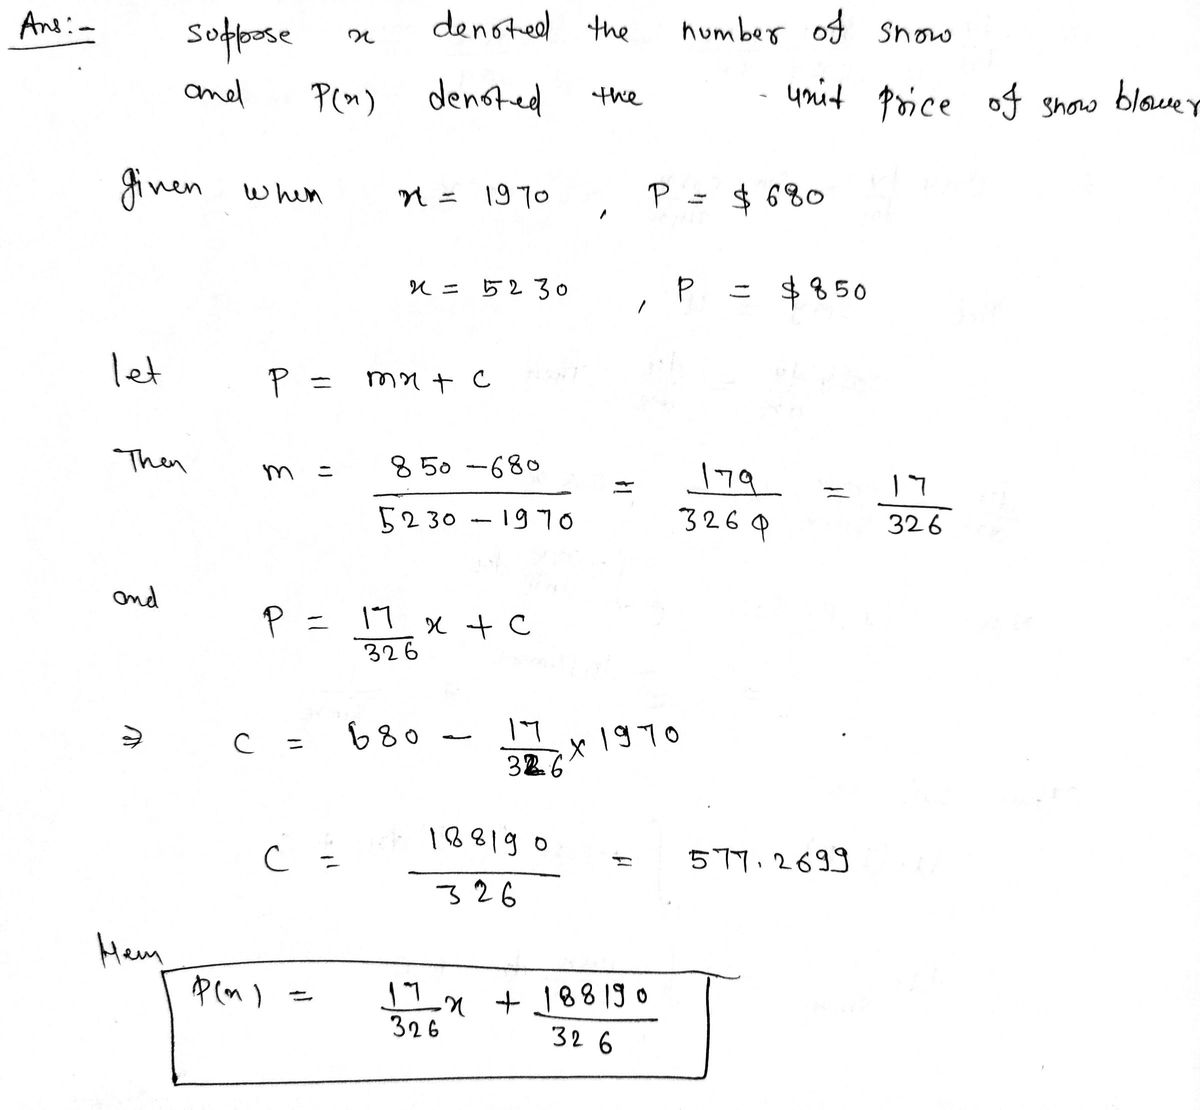 Ans:-
suppose x denoted the number of snow
and P(x) denoted the unit price of snow blower
given when x = 1970 , P = $ 680
x = 5230 , P = $ 850
let P = mx + c
Then m = 850 - 680 / 5230 - 1970 = 170 / 3260 = 17 / 326
and P = 17/326 x + c
⇒ c = 680 - 17/326 × 1970
C = 188190 / 326 = 577.2699
Hem
P(x) = 17/326 x + 188190/326